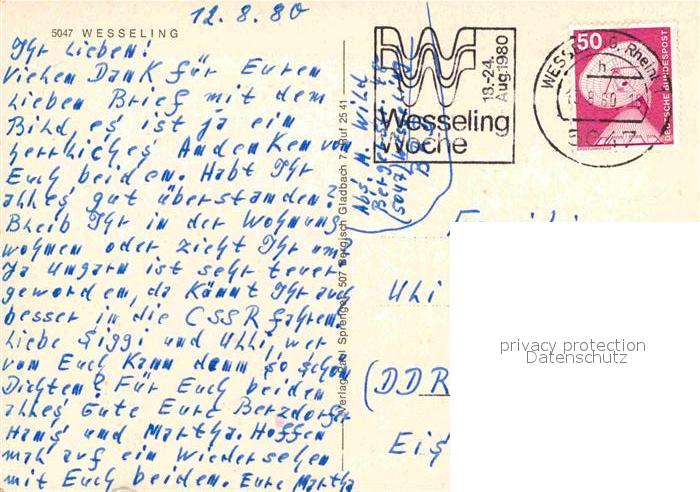 12.8.80
5047 WESSELING
Ihr Lieben!
Vielen Dank für Euren
lieben Brief mit dem
Bild, es ist ja ein
herrliches Andenken von
Euch beiden. Habt Ihr
alles gut überstanden?
Bleib Ihr in der Wohnung
wohnen oder zieht Ihr um?
Ja Ungarn ist sehr teuer
geworden, da könnt Ihr auch
besser in die CSSR fahren.
Liebe Siggi und Ulli, wer
von Euch kann denn so schön
Dichten? Für Euch beiden
alles Gute Eure Berzdorfer
Hans und Martha. Hoffen
mal auf ein Wiedersehen
mit Euch beiden. Eure Martha
Verlag Paul Sprenger, 507 Bergisch Gladbach 7, Ruf 25 41
Abs. M. Wild
(5047) Wesseling
Wesseling
Woche
18.-24.
Aug. 1980
50
DEUTSCHE BUNDESPOST
5047
Uli
(DDR
Eis
privacy protection
Datenschutz